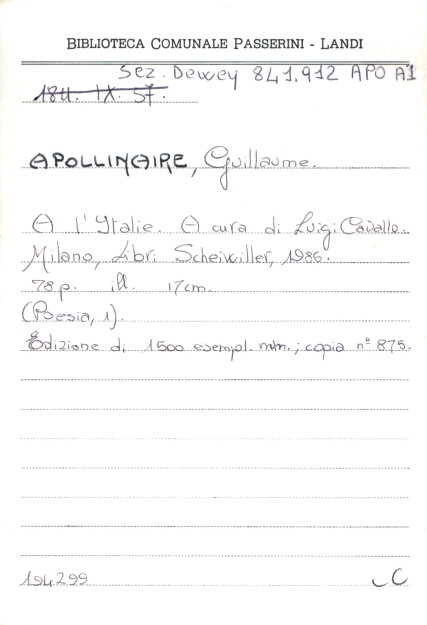 BIBLIOTECA COMUNALE PASSERINI - LANDI
Sez. Dewey 841.912 APO A1
184. IX. 57.
APOLLINAIRE, Guillaume.
A l'Italie. A cura di Luigi Cavallo.
Milano, Libri Scheiwiller, 1986.
78 p. ill. 17 cm.
(Poesia, 1).
Edizione di 1500 esempl. num.; copia n° 875.
194299
C